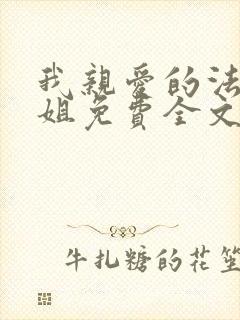 我親愛的法
姐免費全文
牛扎糖的花笙